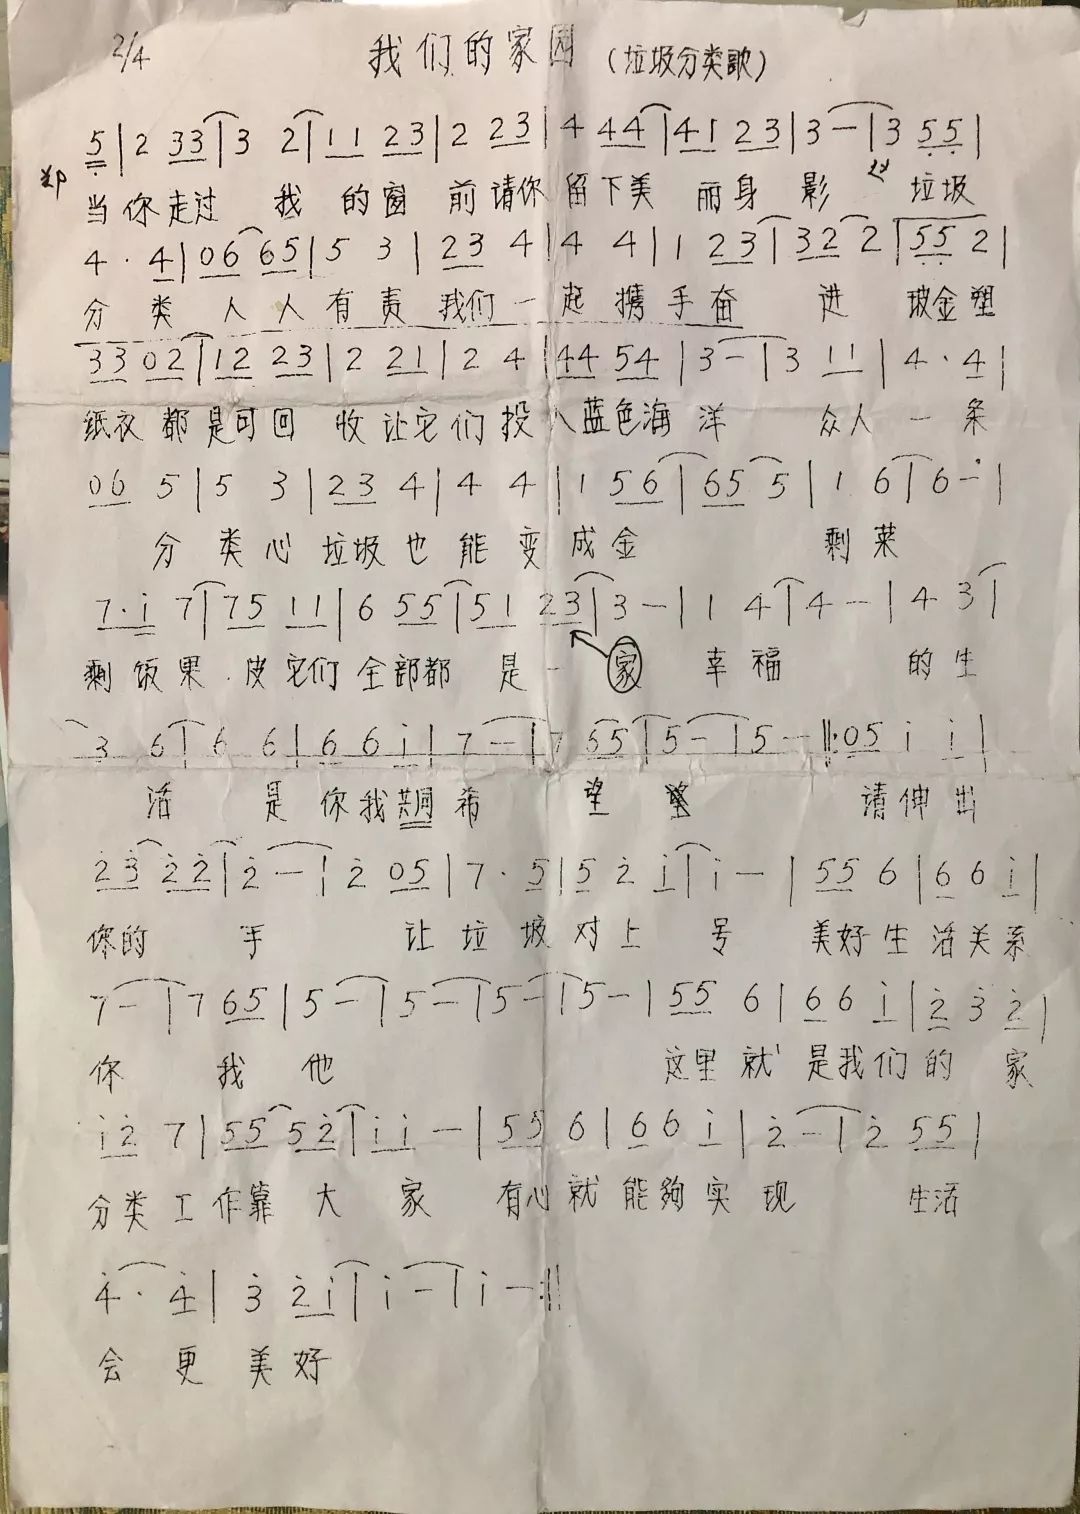 2/4 我们的家园 (垃圾分类歌)
5 | 2 33 | 3 2 | 11 23 | 2 23 | 4 44 | 41 23 | 3 — | 3 55 |
当你走过 我的窗前请你留下美丽身影 垃圾
4 · 4 | 06 65 | 5 3 | 23 4 | 4 4 | 1 23 | 32 2 | 55 2 |
分类人人有责我们一起携手奋进 玻金塑
33 02 | 12 23 | 2 21 | 2 4 | 44 54 | 3 — | 3 11 | 4 · 4 |
纸衣都是可回收让它们投入蓝色海洋 众人一条
06 5 | 5 3 | 23 4 | 4 4 | 1 56 | 65 5 | 1 6 | 6 — |
分类心垃圾也能变成金 剩菜
7·i 7 | 75 11 | 6 55 | 51 23 | 3 — | 1 4 | 4 — | 4 3 |
剩饭果皮它们全部都是一家 幸福 的生
3 6 | 6 6 | 6 6 i | 7 — | 7 65 | 5 — | 5 — ‖: 05 i i |
活是你我共同希望 请伸出
2̇3̇ 2̇2̇ | 2̇ — | 2̇ 05 | 7 · 5 | 5 2̇ i | i — | 55 6 | 6 6 i |
你的手 让垃圾对上号 美好生活关系
7 — | 7 65 | 5 — | 5 — | 5 — | 5 — | 55 6 | 6 6 i | 2̇ 3̇ 2̇ |
你我他 这里就是我们的家
i2̇ 7 | 55 52̇ | i i — | 55 6 | 6 6 i | 2̇ — | 2̇ 55 |
分类工作靠大家 有心就能够实现 生活
4̇ · 4̇ | 3̇ 2̇i | i — | i — :‖
会更美好